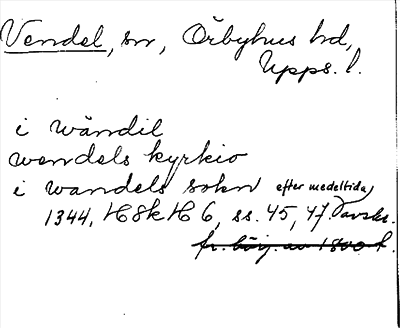 Vendel, sn, Örbyhus hd,
Upps. l.
i wändil
wendels kyrkio
i wandels sokn efter medeltida
1344, HSH 6, ss. 45, 47 avskr.
fr. börj. av 1800 t.